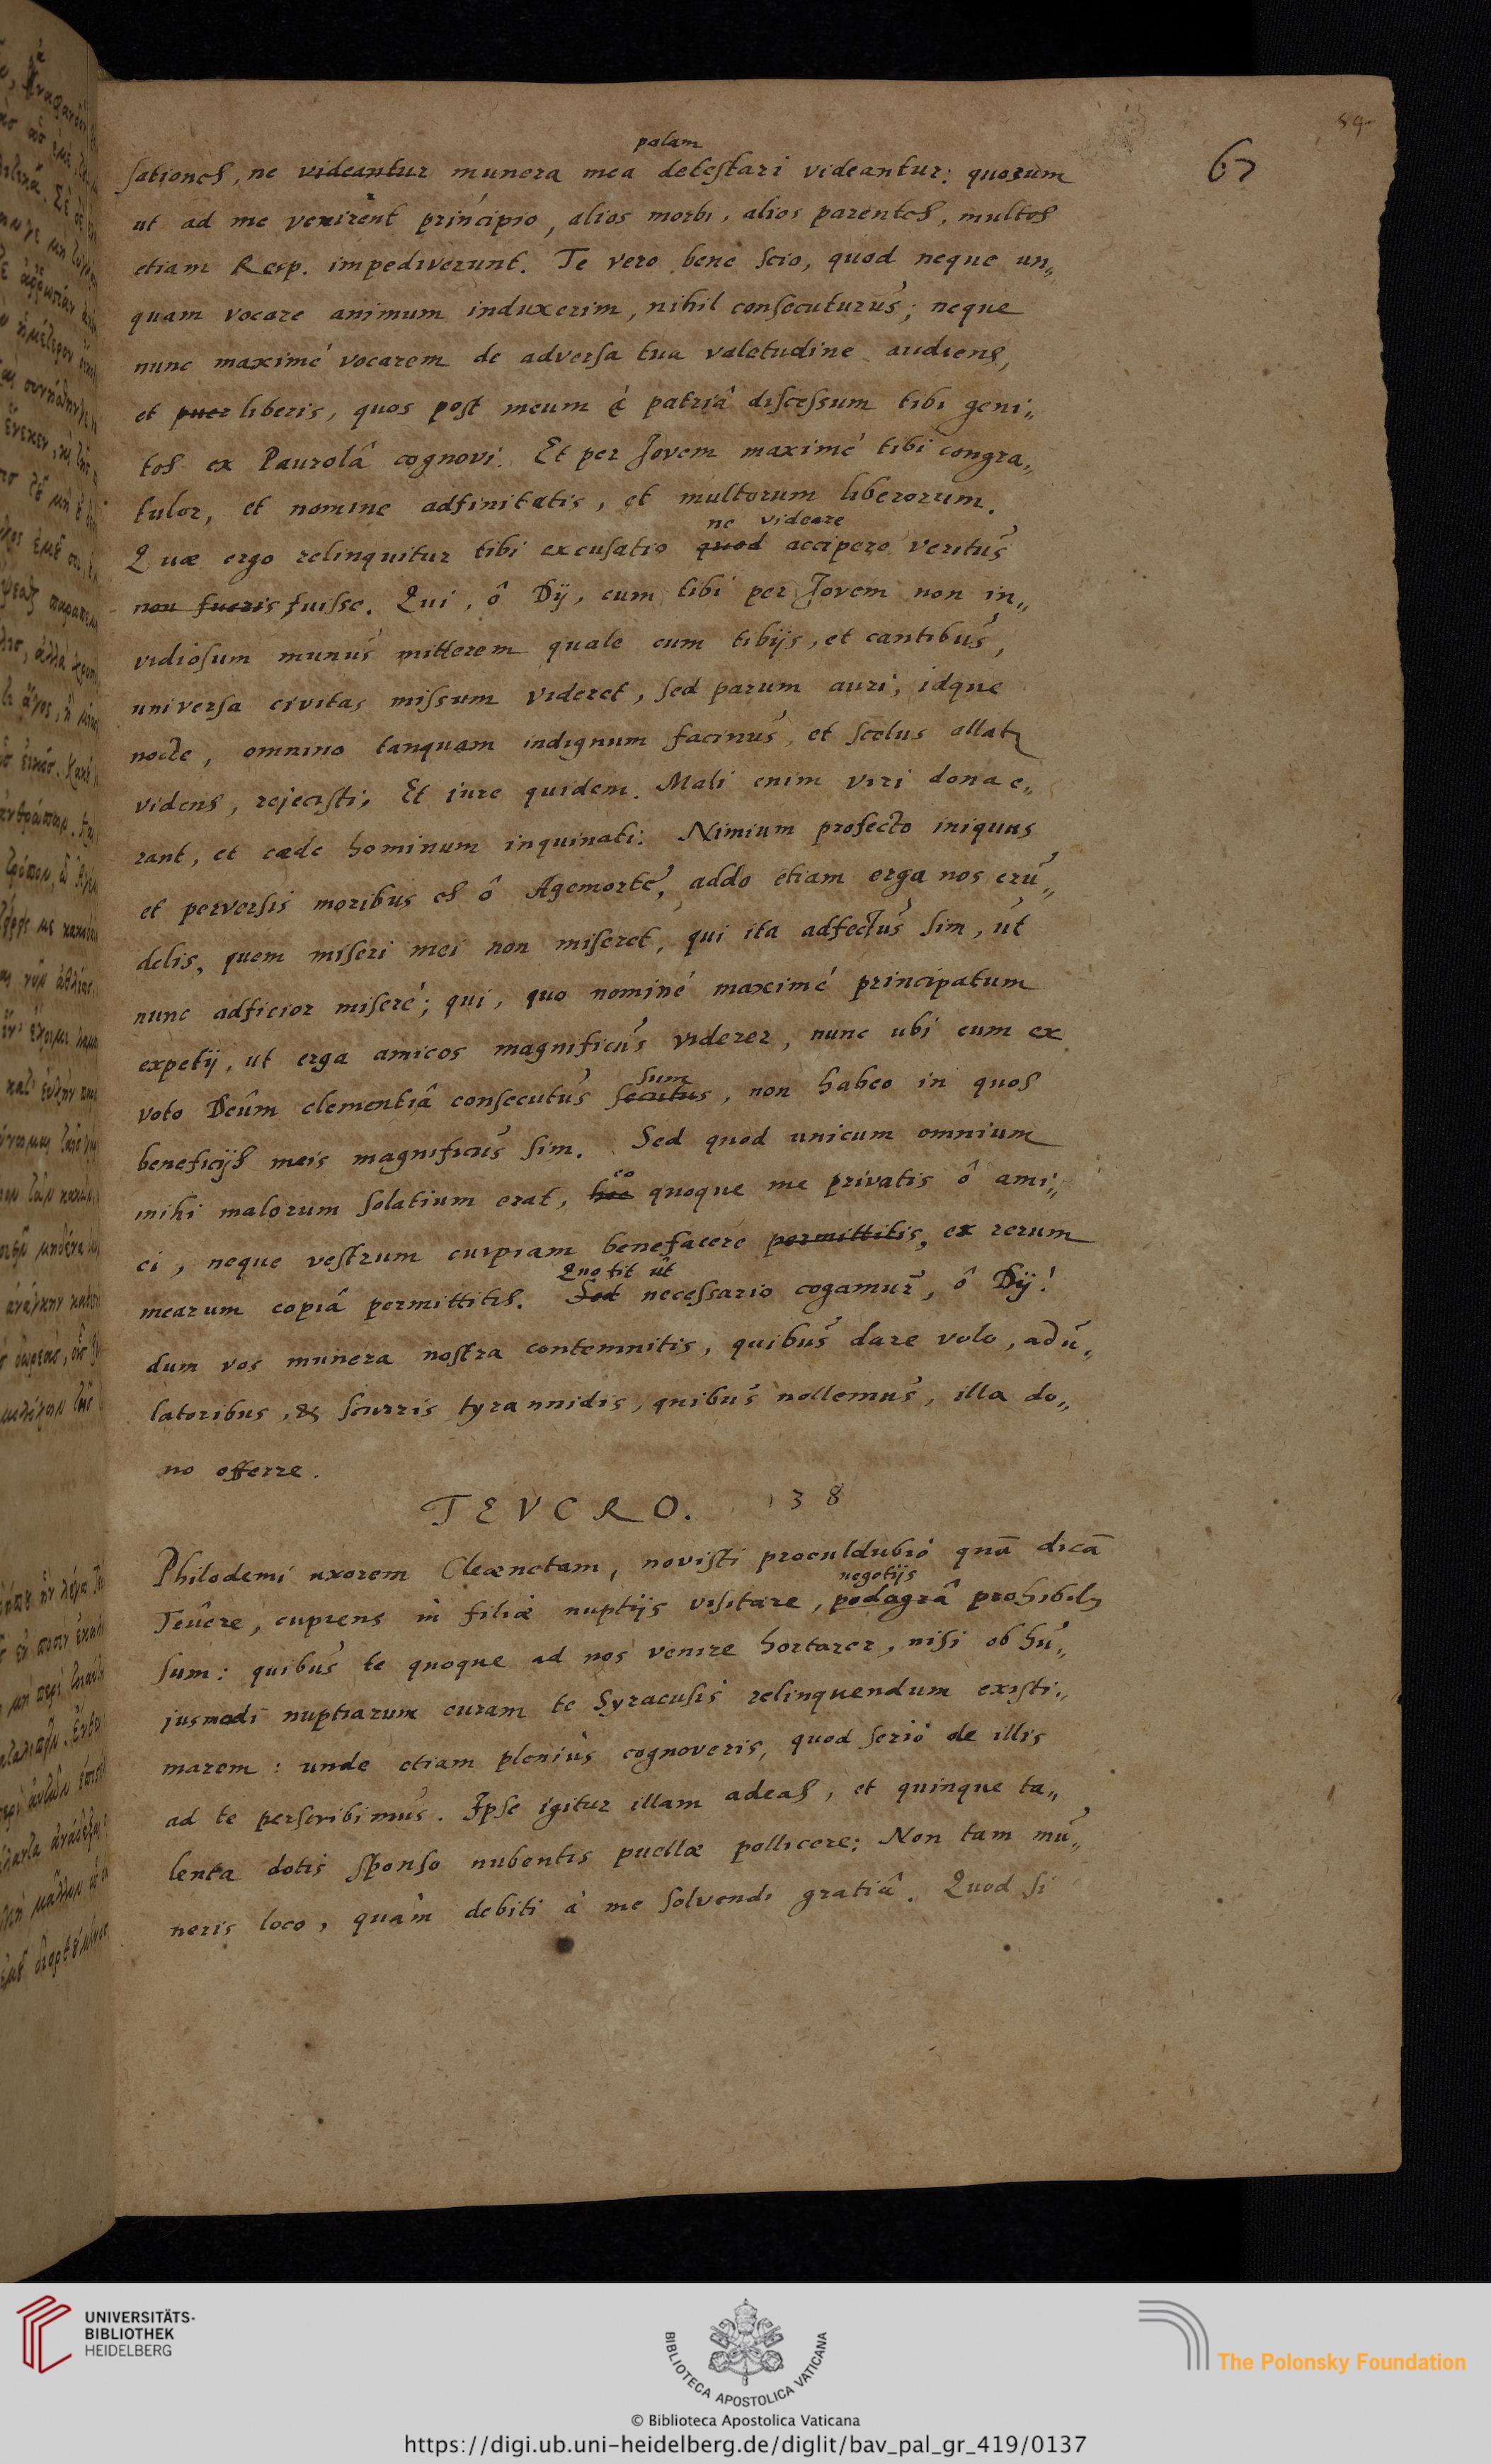 59.
67
palam
sationes, ne videantur munera mea detestari videantur: quorum
ut ad me venirent principio, alios morbi, alios parentes, multos
etiam Resp. impediverunt. Te vero bene scio, quod neque un„
quam vocare animum induxerim, nihil consecuturus; neque
nunc maximé vocarem de adversa tua valetudine audiens,
et puer liberis, quos post meum é patriâ discessum tibi geni„
tos ex Paurolâ cognovi. Et per Jovem maximé tibi congra„
tulor, et nomine adfinitatis, et multorum liberorum.
ne videare
Quæ ergo relinquitur tibi excusatio quod accipere veritus
non fueris fuisse. Qui, ô Dij, cum tibi per Jovem non in„
vidiosum munus mitterem quale cum tibijs, et cantibus,
universa civitas missum videret, sed parum auri, idque
nocte, omnino tanquam indignum facinus, et scelus allatz
videns, rejecisti; Et jure quidem. Mali enim viri dona e„
rant, et cæde hominum inquinati: Nimium profecto iniquus
et perversis moribus es ô Agemorte, addo etiam erga nos cru„
delis, quem miseri mei non miseret, qui ita adfectus sim, ut
nunc adficior miseré; qui, quo nominé maximé principatum
expetij, ut erga amicos magnificus viderer, nunc ubi eum ex
sum
voto Deûm clementiâ consecutus secutus, non habeo in quos
beneficijs meis magnificus sim. Sed quod unicum omnium
eo
mihi malorum solatium erat, hoc quoque me privatis ô ami„
ci, neque vestrum cuipiam benefacere permittitis, ex rerum
Quo fit ut
mearum copiâ permittitis. Sed necessario cogamur, ô Dij!
dum vos munera nostra contemnitis, quibus dare volo, adu„
latoribus, & scurris tyrannidis, quibus nollemus, illa do„
no offerre.
TEVCRO. 38
Philodemi uxorem Cleænetam, novisti proculdubió quā dicā
negotijs
Teucre, cupiens in filiæ nuptijs visitare, podagrâ prohibitz
sum: quibus te quoque ad nos venire hortarer, nisi ob hu„
jusmodi nuptiarum curam te Syracusis relinquendum existi„
marem: unde etiam pleniùs cognoveris, quod serió de illis
ad te perscribimus. Ipse igitur illam adeas, et quinque ta„
lenta dotis sponso nubentis puellæ pollicere: Non tam mu„
neris loco, quàm debiti à me solvendi gratiâ. Quod si
UNIVERSITÄTS-
BIBLIOTHEK
HEIDELBERG
BIBLIOTECA APOSTOLICA VATICANA
The Polonsky Foundation
© Biblioteca Apostolica Vaticana
https://digi.ub.uni-heidelberg.de/diglit/bav_pal_gr_419/0137